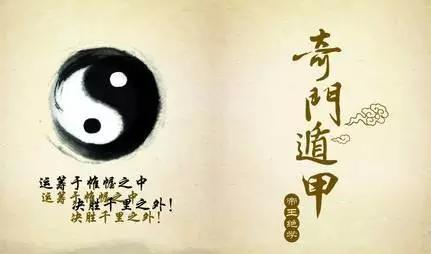 奇門遁甲
帝王绝学
运筹于帷幄之中
运筹于帷幄之中
决胜千里之外!
决胜千里之外!